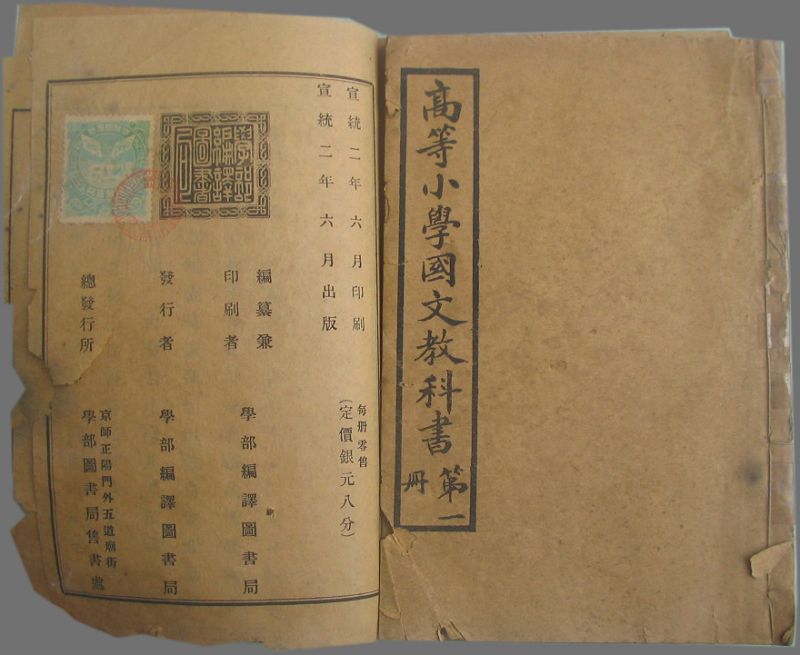 高等小學國文教科書
第一
册
宣統二年六月印刷
宣統二年六月出版
每册零售
(定價銀元八分)
編纂兼
印刷者
學部編譯圖書局
發行者
學部編譯圖書局
總發行所
京師正陽門外五道廟街
學部圖書局售書處
學部
編譯
圖書
局